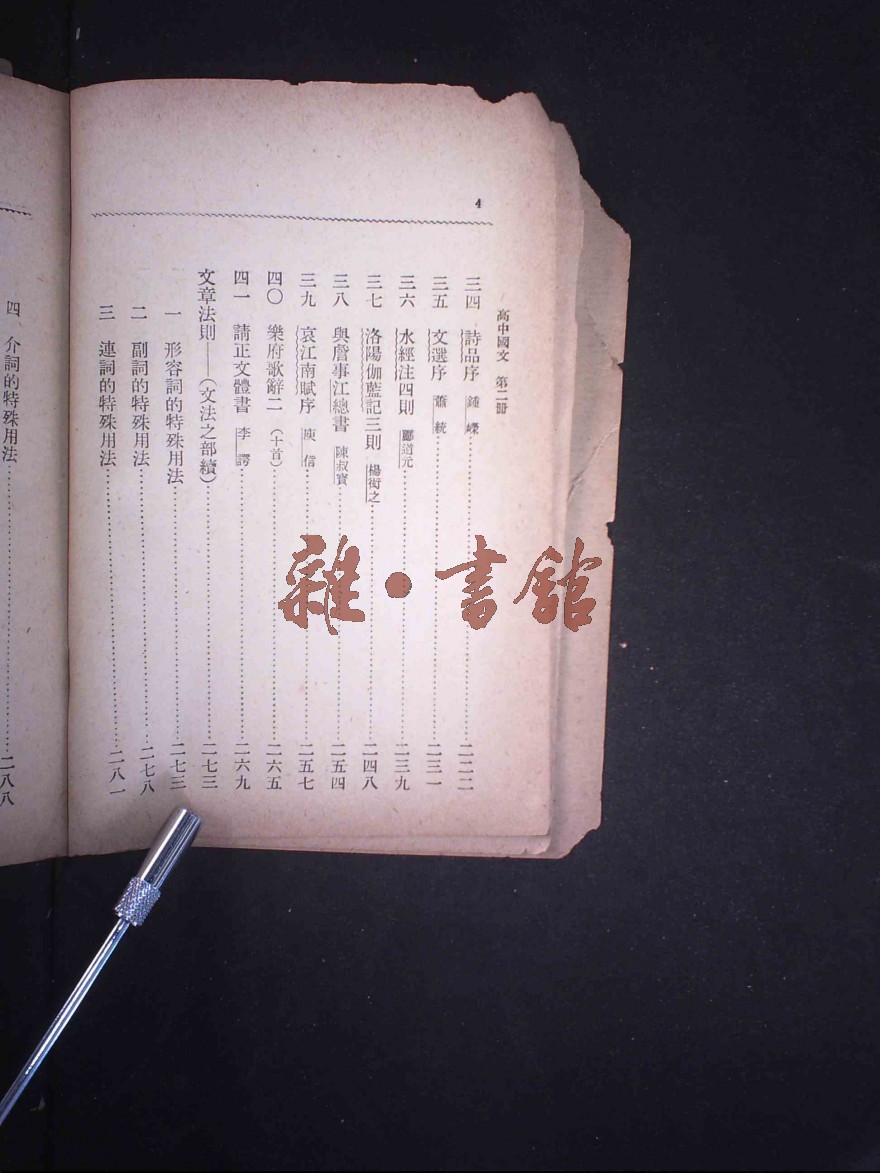 4
高中國文 第二册
三四 詩品序 鍾嶸……二二二
三五 文選序 蕭統……二三一
三六 水經注四則 酈道元……二三九
三七 洛陽伽藍記三則 楊衒之……二四八
三八 與詹事江總書 陳叔寶……二五四
三九 哀江南賦序 庾信……二五七
四〇 樂府歌辭二(十首)……二六五
四一 請正文體書 李諤……二六九
文章法則——(文法之部續)……二七三
一 形容詞的特殊用法……二七三
二 副詞的特殊用法……二七八
三 連詞的特殊用法……二八一
四、介詞的特殊用法……二八八
雜·書館